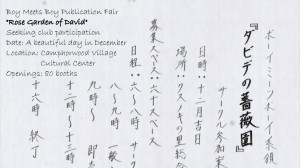 Boy Meets Boy Publication Fair
"Rose Garden of David"
Seeking club participation
Date: A beautiful day in December
Location: Camphorwood Village
Cultural Center
Openings: 80 booths
ボーイミーツボーイ系頒
『ダビデの薔薇園』
サークル参加案
日時：十二月吉日
場所：クスノキの里総
募集スペース：十スペース
日程：〜八時
八時〜 一般
九時〜 即
十二時〜十三時
十六時 終了